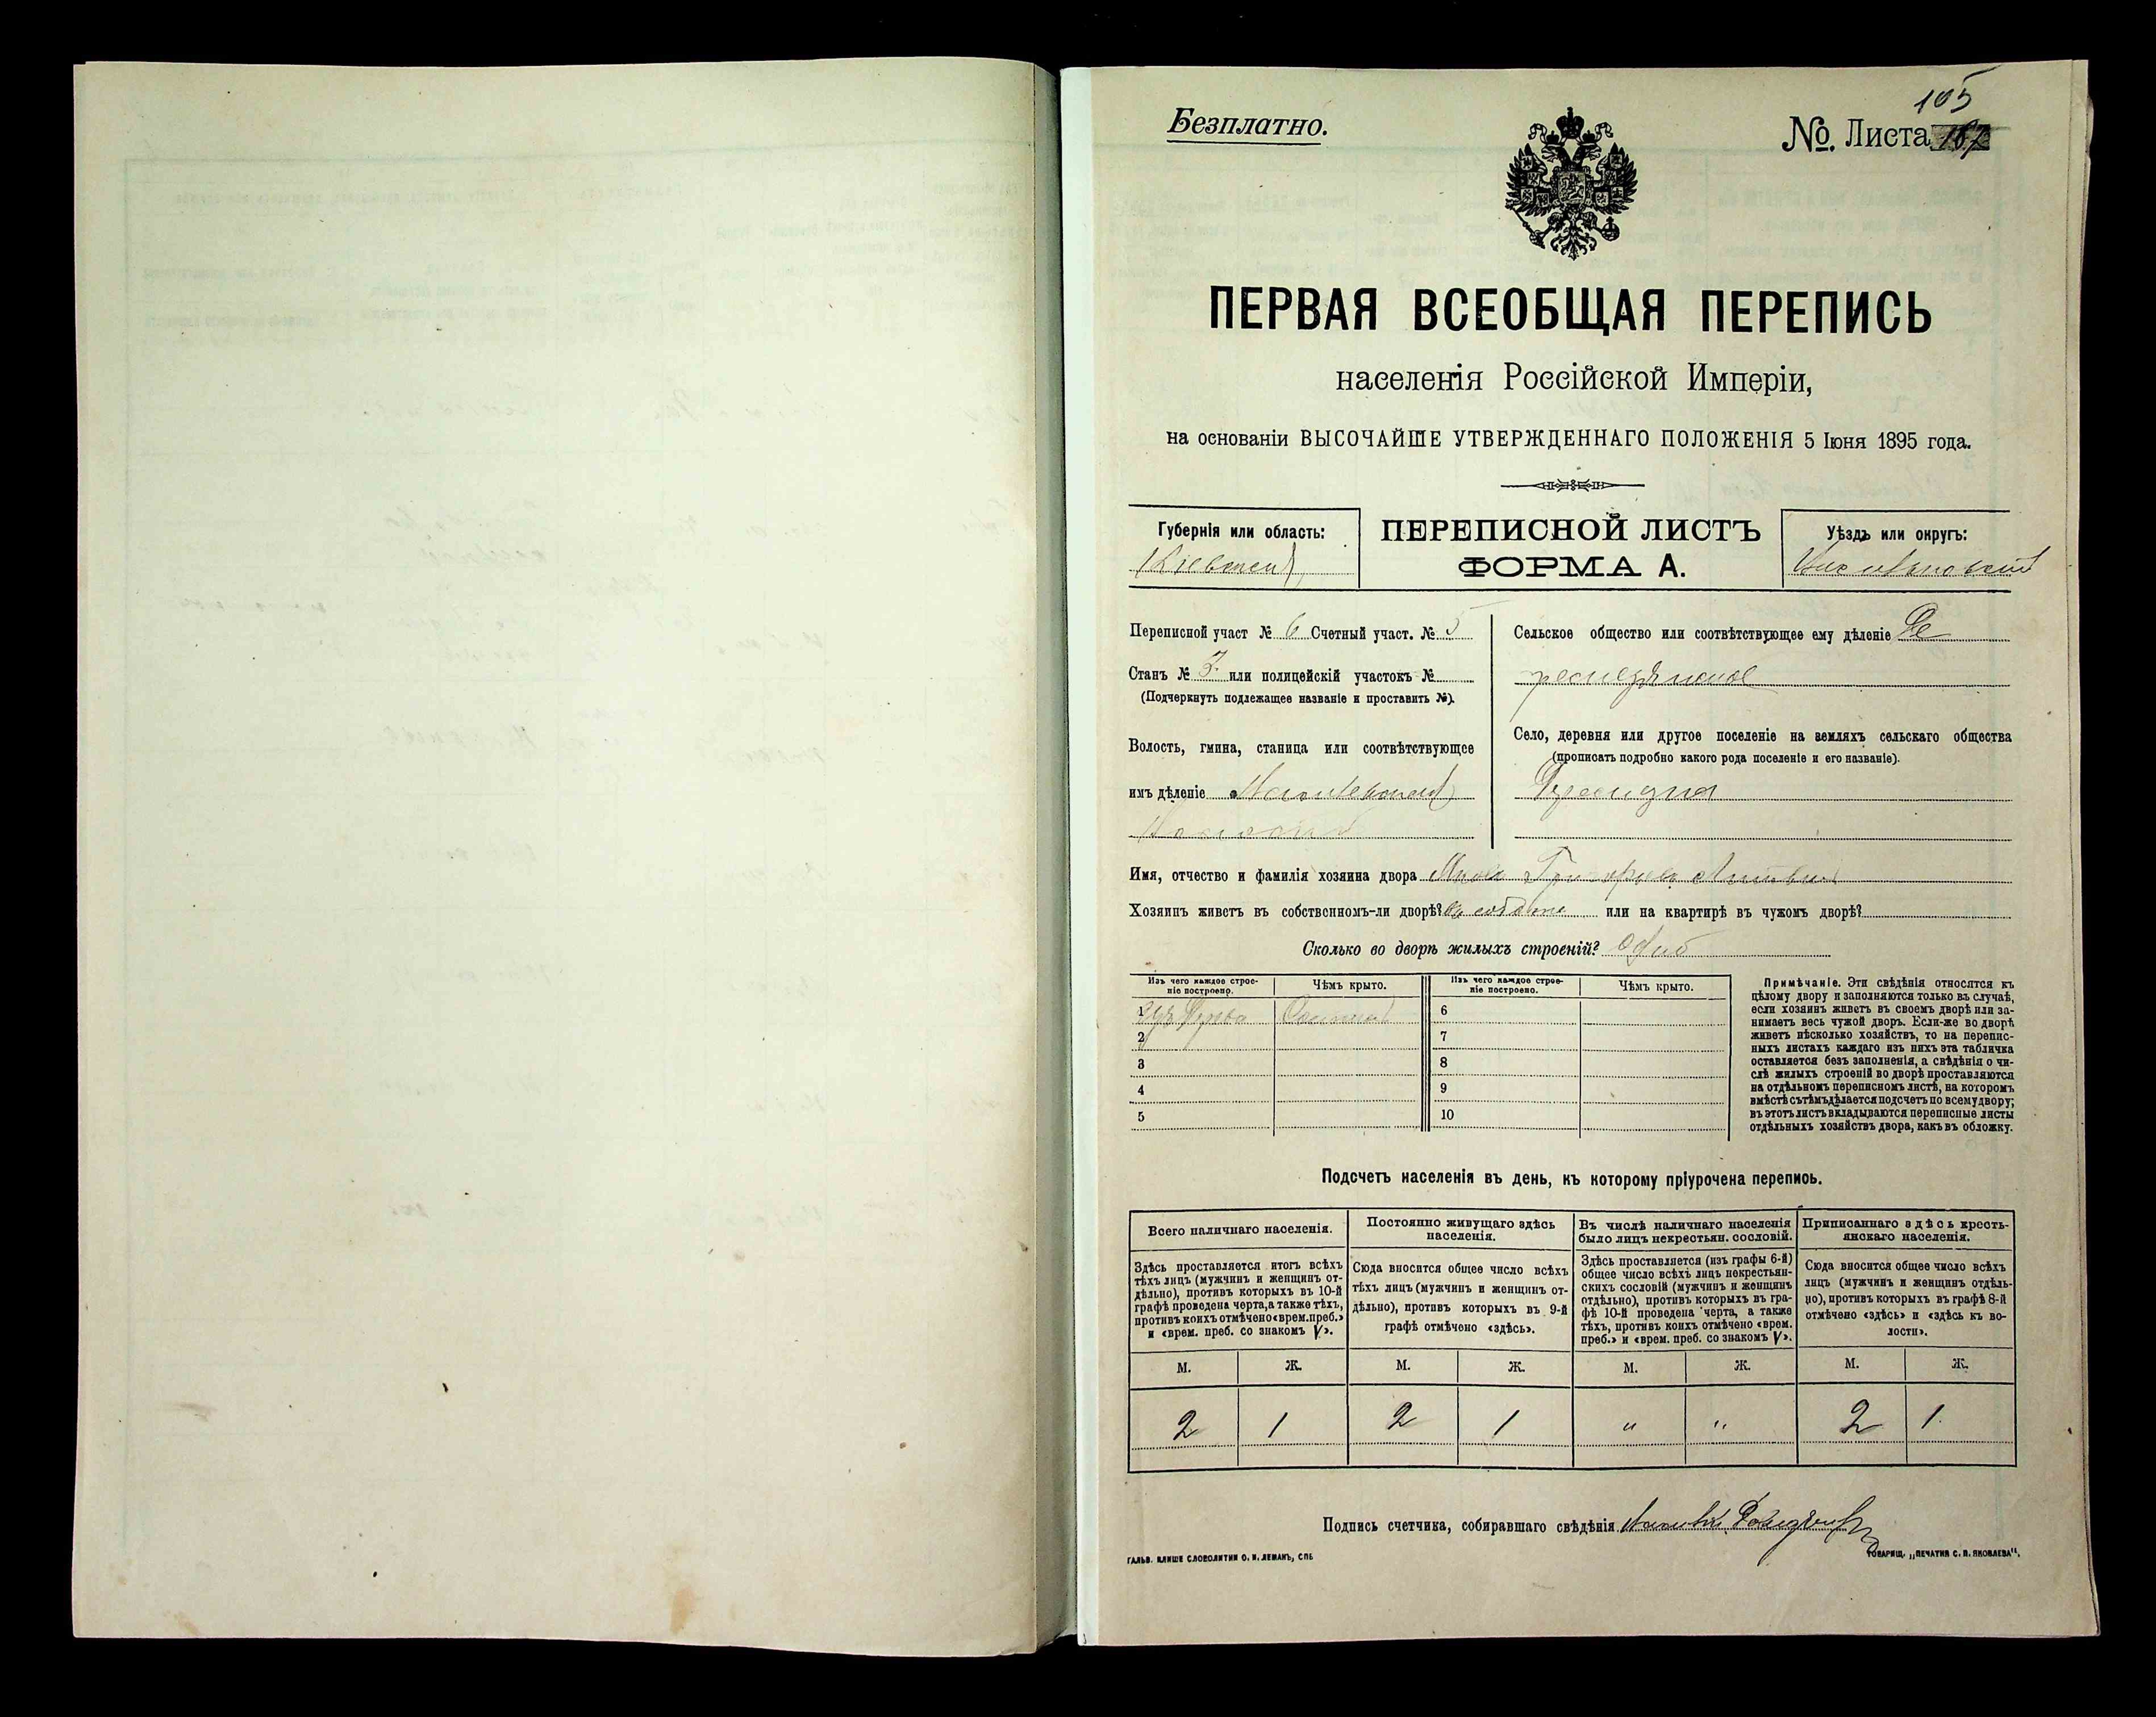 105
Безплатно.
№. Листа 187
ПЕРВАЯ ВСЕОБЩАЯ ПЕРЕПИСЬ
населенія Россійской Имперіи,
на основаніи ВЫСОЧАЙШЕ УТВЕРЖДЕННАГО ПОЛОЖЕНІЯ 5 Іюня 1895 года.
Губернія или область:
Кіевская
ПЕРЕПИСНОЙ ЛИСТЪ
ФОРМА А.
Уѣздъ или округъ:
Переписной участ № 6 Счетный участ. № 5
Станъ № 3. или полицейскій участокъ №
(Подчеркнуть подлежащее названіе и проставить №).
Волость, гмина, станица или соотвѣтствующее
имъ дѣленіе
Сельское общество или соотвѣтствующее ему дѣленіе
Село, деревня или другое поселеніе на земляхъ сельскаго общества
(прописать подробно какого рода поселеніе и его названіе).
Имя, отчество и фамилія хозяина двора
Хозяинъ живетъ въ собственномъ-ли дворѣ? или на квартирѣ въ чужомъ дворѣ?
Сколько во дворѣ жилыхъ строеній?
Изъ чего каждое строе-
ніе построено.
Чѣмъ крыто.
Изъ чего каждое строе-
ніе построено.
Чѣмъ крыто.
1
6
2
7
3
8
4
9
5
10
Примѣчаніе. Эти свѣдѣнія относятся къ
цѣлому двору и заполняются только въ случаѣ,
если хозяинъ живетъ въ своемъ дворѣ или за-
нимаетъ весь чужой дворъ. Если-же во дворѣ
живетъ нѣсколько хозяйствъ, то на перепис-
ныхъ листахъ каждаго изъ нихъ эта табличка
оставляется безъ заполненія, а свѣдѣнія о чи-
слѣ жилыхъ строеній во дворѣ проставляются
на отдѣльномъ переписномъ листѣ, на которомъ
вмѣстѣ съ тѣмъ дѣлается подсчетъ по всему двору;
въ этотъ листъ вкладываются переписные листы
отдѣльныхъ хозяйствъ двора, какъ въ обложку.
Подсчетъ населенія въ день, къ которому пріурочена перепись.
Всего наличнаго населенія.
Здѣсь проставляется итогъ всѣхъ
тѣхъ лицъ (мужчинъ и женщинъ от-
дѣльно), противъ которыхъ въ 10-й
графѣ проведена черта, а также тѣхъ,
противъ коихъ отмѣчено «врем. преб.»
и «врем. преб. со знакомъ V».
Постоянно живущаго здѣсь
населенія.
Сюда вносится общее число всѣхъ
тѣхъ лицъ (мужчинъ и женщинъ от-
дѣльно), противъ которыхъ въ 9-й
графѣ отмѣчено «здѣсь».
Въ числѣ наличнаго населенія
было лицъ некрестьян. сословій.
Здѣсь проставляется (изъ графы 6-й)
общее число всѣхъ лицъ некрестьян-
скихъ сословій (мужчинъ и женщинъ
отдѣльно), противъ которыхъ въ гра-
фѣ 10-й проведена черта, а также
тѣхъ, противъ коихъ отмѣчено «врем.
преб.» и «врем. преб. со знакомъ V».
Приписаннаго здѣсь кресть-
янскаго населенія.
Сюда вносится общее число всѣхъ
лицъ (мужчинъ и женщинъ отдѣль-
но), противъ которыхъ въ графѣ 8-й
отмѣчено «здѣсь» и «здѣсь къ во-
лости».
М. Ж. М. Ж. М. Ж. М. Ж.
2 1 2 1 " " 2 1
Подпись счетчика, собиравшаго свѣдѣнія
ГАЛЬВ. КЛИШЕ СЛОВОЛИТНИ О. И. ЛЕМАНЪ, СПБ
ТОВАРИЩ. „ПЕЧАТНЯ С. П. ЯКОВЛЕВА".